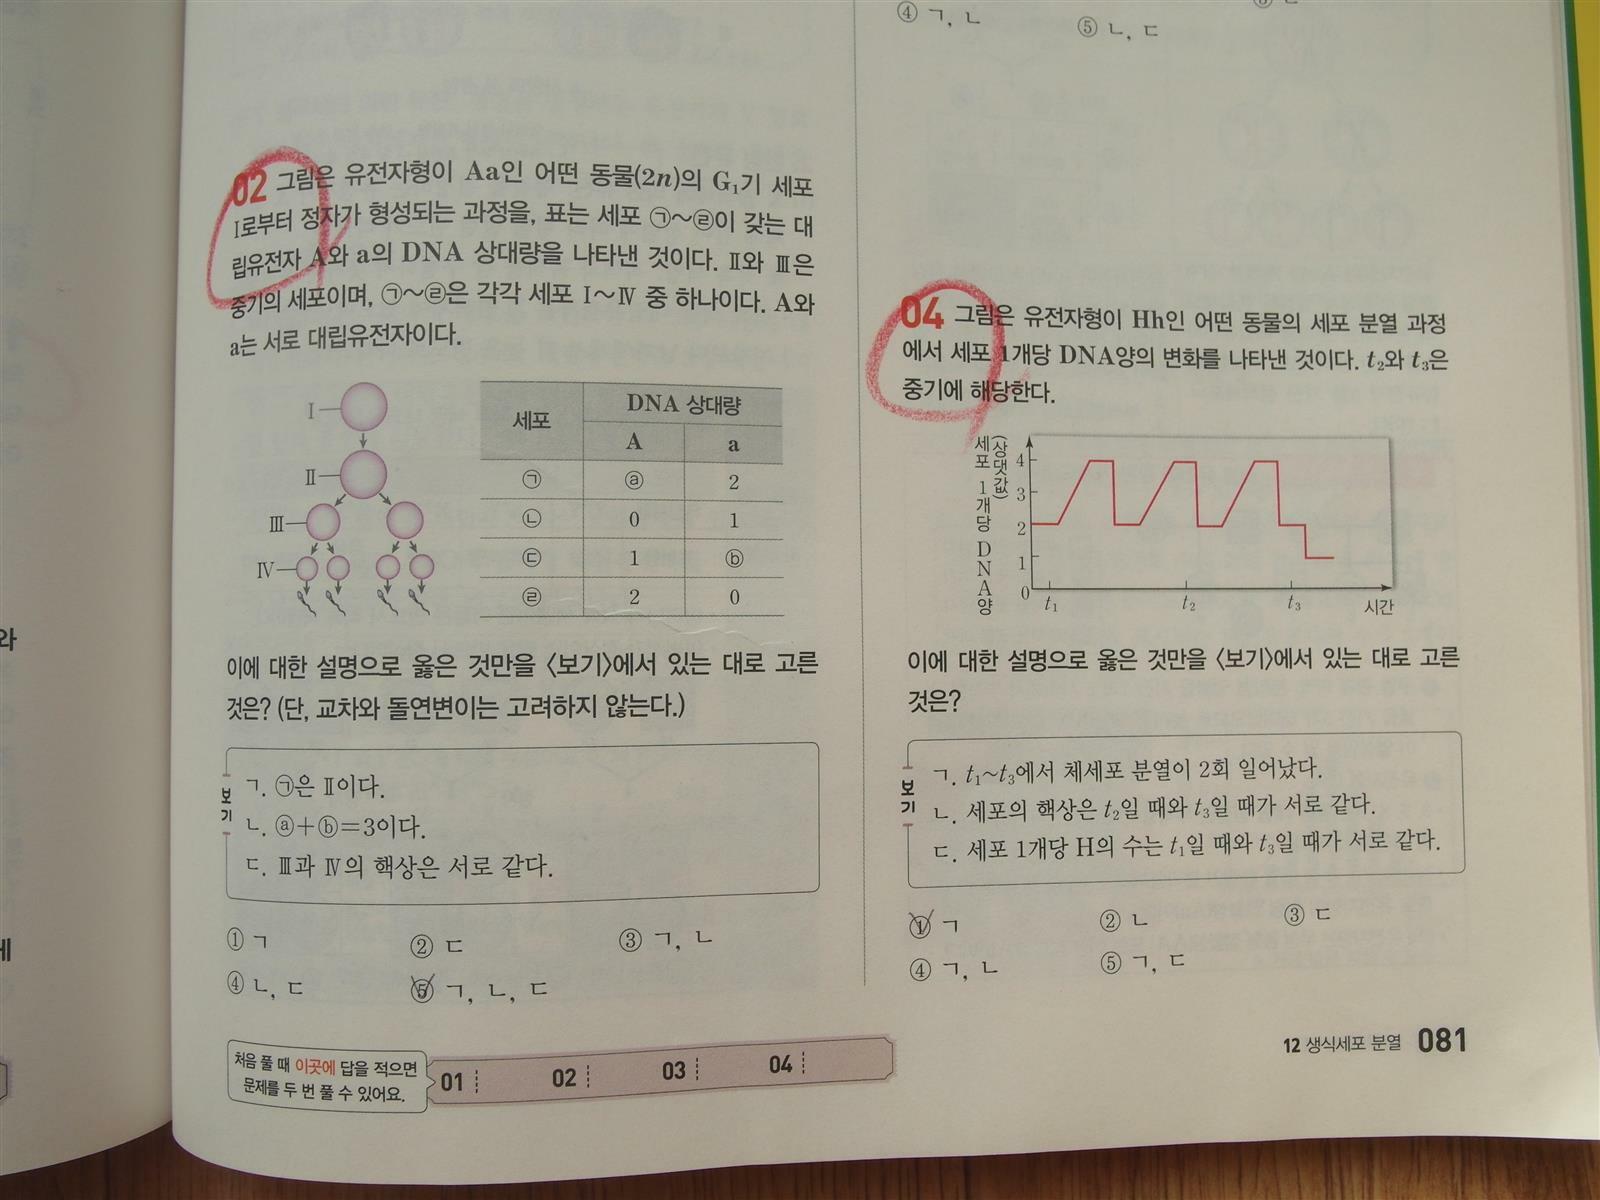 02 그림은 유전자형이 Aa인 어떤 동물(2n)의 G₁기 세포
Ⅰ로부터 정자가 형성되는 과정을, 표는 세포 ㉠~㉣이 갖는 대
립유전자 A와 a의 DNA 상대량을 나타낸 것이다. Ⅱ와 Ⅲ은
중기의 세포이며, ㉠~㉣은 각각 세포 Ⅰ~Ⅳ 중 하나이다. A와
a는 서로 대립유전자이다.
Ⅰ
Ⅱ
Ⅲ
Ⅳ
세포 DNA 상대량
A a
㉠ ⓐ 2
㉡ 0 1
㉢ 1 ⓑ
㉣ 2 0
이에 대한 설명으로 옳은 것만을 <보기>에서 있는 대로 고른
것은? (단, 교차와 돌연변이는 고려하지 않는다.)
보기
ㄱ. ㉠은 Ⅱ이다.
ㄴ. ⓐ+ⓑ=3이다.
ㄷ. Ⅲ과 Ⅳ의 핵상은 서로 같다.
① ㄱ ② ㄷ ③ ㄱ, ㄴ
④ ㄴ, ㄷ ⑤ ㄱ, ㄴ, ㄷ
④ ㄱ, ㄴ ⑤ ㄴ, ㄷ
04 그림은 유전자형이 Hh인 어떤 동물의 세포 분열 과정
에서 세포 1개당 DNA양의 변화를 나타낸 것이다. t₂와 t₃은
중기에 해당한다.
세포 1개당 DNA양
(상댓값)
4
3
2
1
0
t₁ t₂ t₃ 시간
이에 대한 설명으로 옳은 것만을 <보기>에서 있는 대로 고른
것은?
보기
ㄱ. t₁~t₃에서 체세포 분열이 2회 일어났다.
ㄴ. 세포의 핵상은 t₂일 때와 t₃일 때가 서로 같다.
ㄷ. 세포 1개당 H의 수는 t₁일 때와 t₃일 때가 서로 같다.
① ㄱ ② ㄴ ③ ㄷ
④ ㄱ, ㄴ ⑤ ㄱ, ㄷ
처음 풀 때 이곳에 답을 적으면
문제를 두 번 풀 수 있어요.
01 02 03 04
12 생식세포 분열 081
와